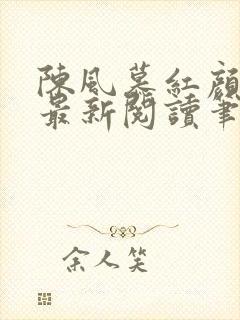 陳風慕紅顏
最新閱讀筆
余人笑